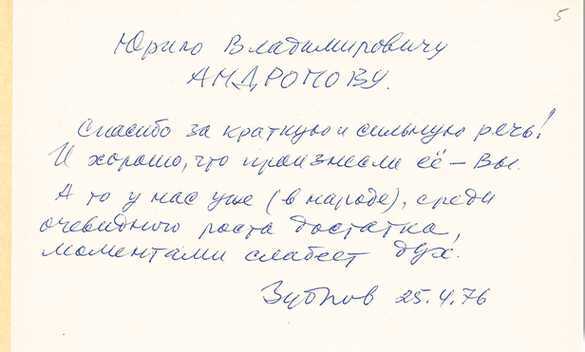 5
Юрию Владимировичу
АНДРОПОВУ.
Спасибо за краткую и сильную речь!
И хорошо, что произнесли её — Вы.
А то у нас уже (в народе), среди
очевидного роста достатка,
моментами слабеет дух.
Зубков 25.4.76